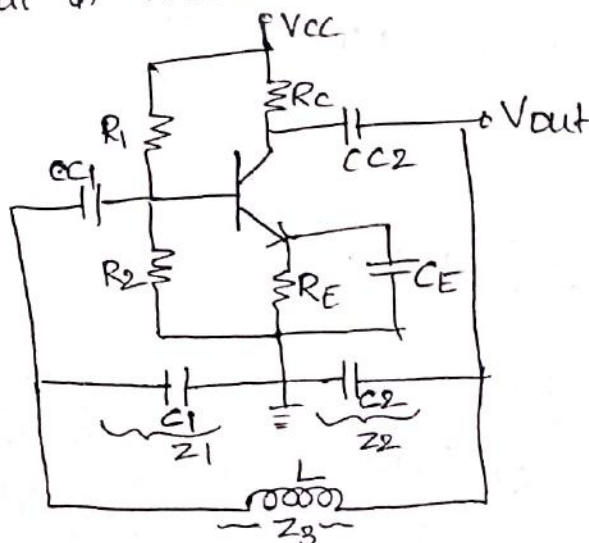 VCC
RC
R1
Vout
CC1
CC2
R2
RE
CE
C1
C2
Z1
Z2
L
Z3